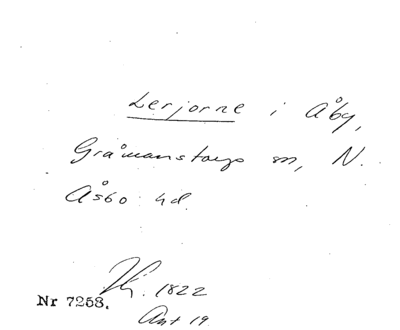 Lerjorne i Åby,
Gråmanstorps sn, N.
Åsbo hd.
1822
Nr 7258.
Ant 19